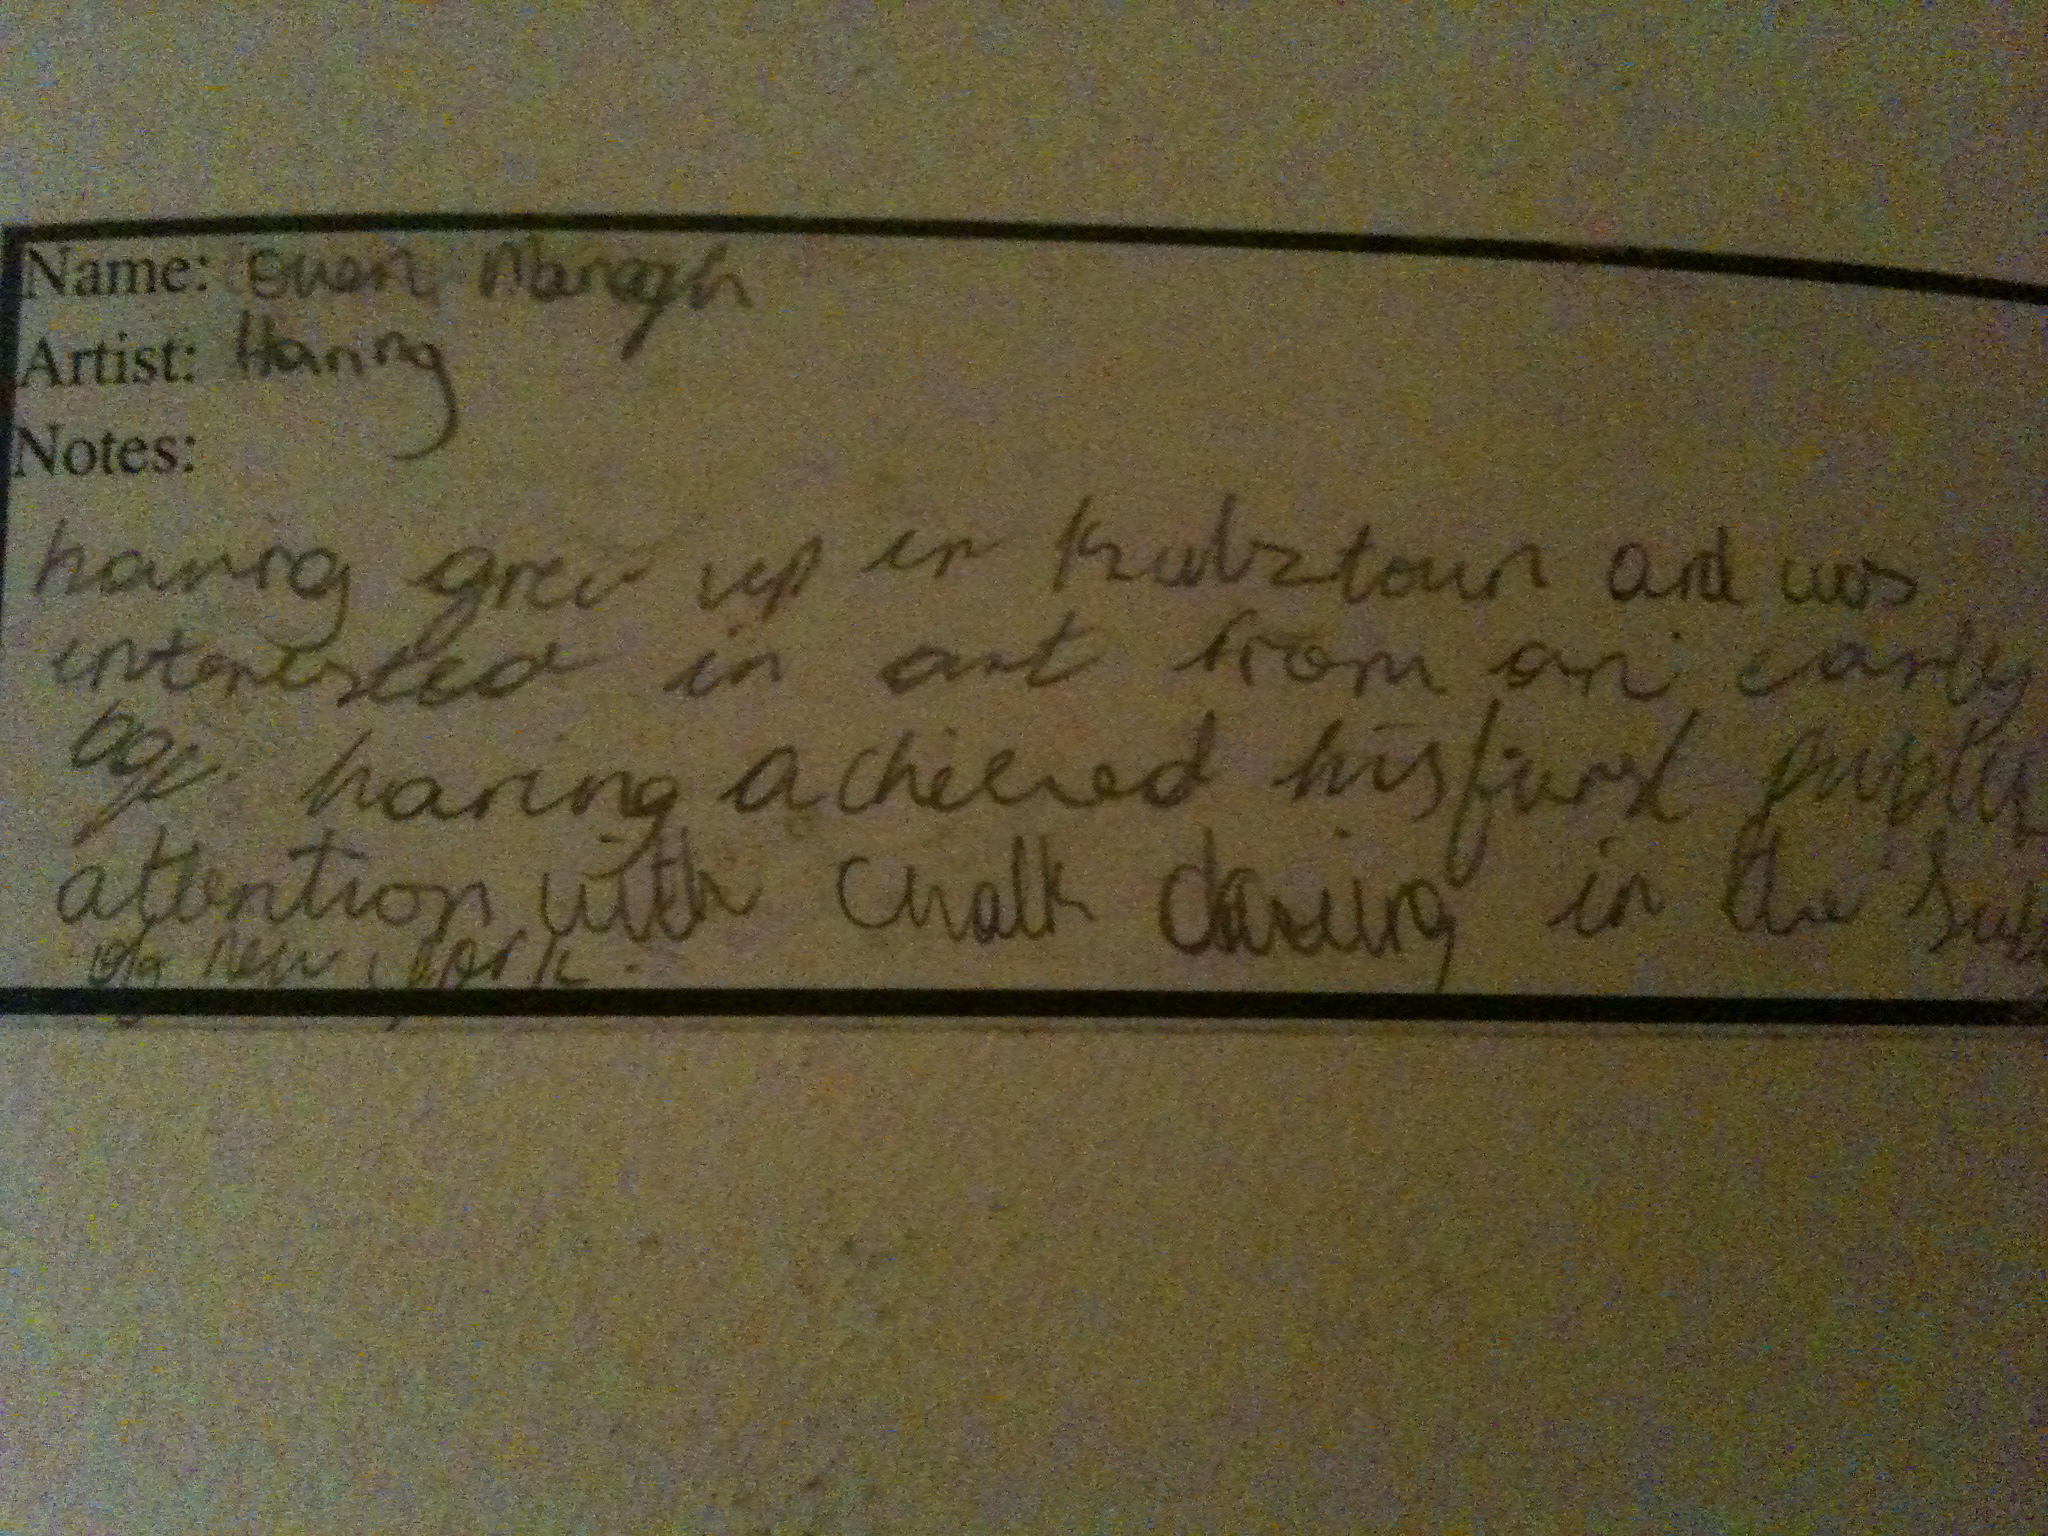 Name: Euen
Artist: Haring
Notes:
haring grew up in Kubztown and was
interested in art from an early
age. haring achieved his first public
attention with chalk drawing in the
New York.